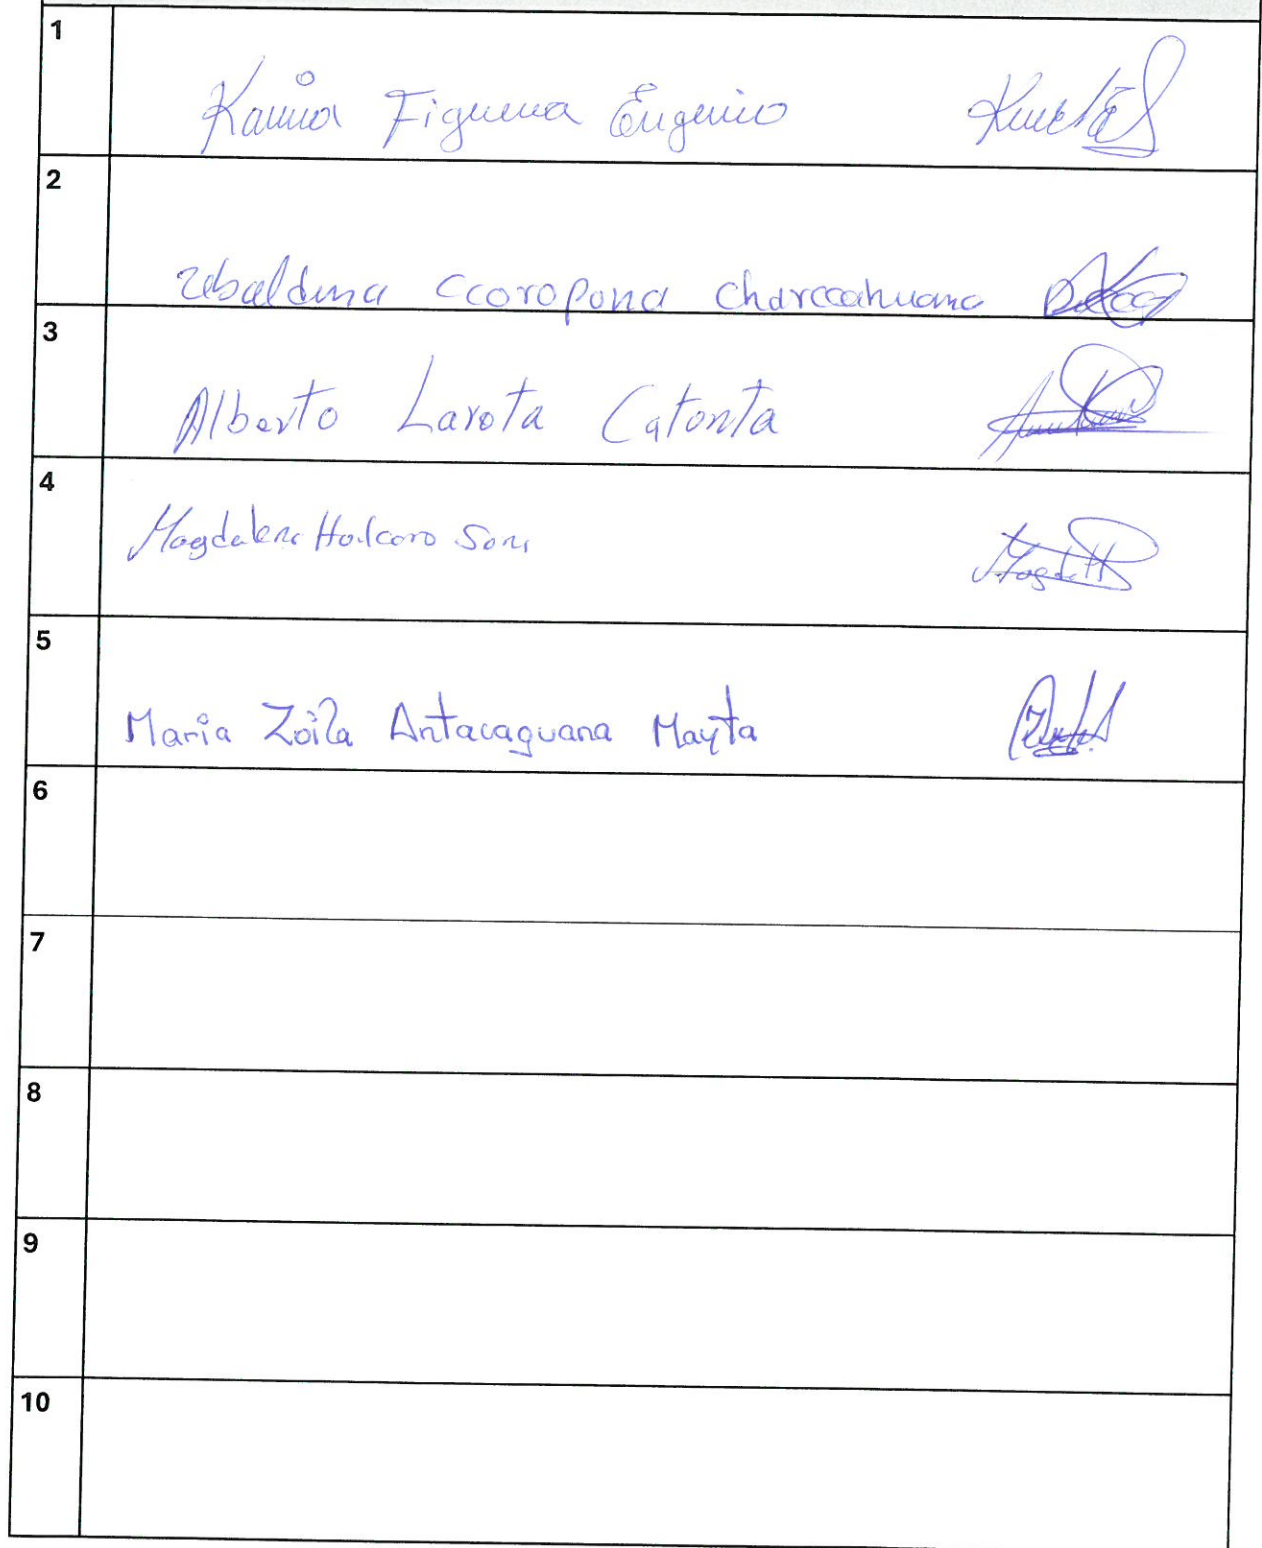 1
Karina Figueroa Eugenio
2
Ubaldina Ccoropona Charccahuana
3
Alberto Larota Catonta
4
Magdalena Huilcaro Soni
5
Maria Zoila Antacaguana Mayta
6
7
8
9
10